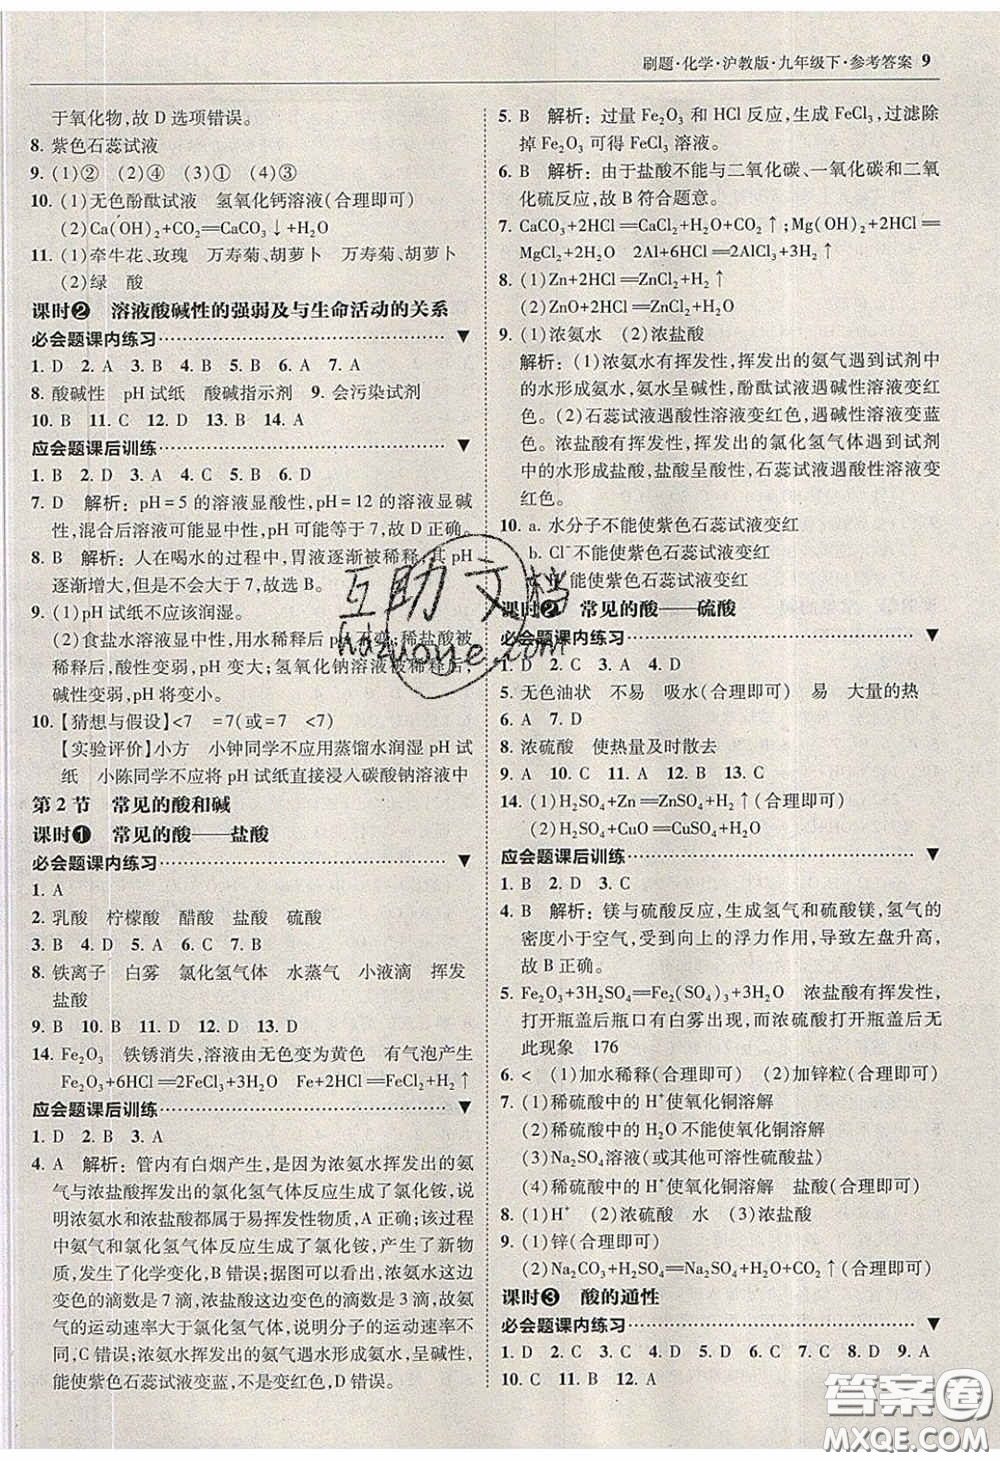 刷题·化学·沪教版·九年级下·参考答案 9
于氧化物,故 D 选项错误。
8. 紫色石蕊试液
9. (1)② (2)④ (3)① (4)③
10. (1)无色酚酞试液 氢氧化钙溶液(合理即可)
(2)Ca(OH)₂+CO₂═CaCO₃↓+H₂O
11. (1)牵牛花、玫瑰 万寿菊、胡萝卜 万寿菊、胡萝卜
(2)绿 酸
课时❷ 溶液酸碱性的强弱及与生命活动的关系
必会题课内练习 ▼
1. D 2. A 3. B 4. B 5. B 6. A 7. A
8. 酸碱性 pH 试纸 酸碱指示剂 9. 会污染试剂
10. B 11. C 12. D 13. B 14. A
应会题课后训练 ▼
1. B 2. D 3. A 4. C 5. B 6. D
7. D 解析:pH=5 的溶液显酸性,pH=12 的溶液显碱
性,混合后溶液可能显中性,pH 可能等于 7,故 D 正确。
8. B 解析:人在喝水的过程中,胃液逐渐被稀释,其 pH
逐渐增大,但是不会大于 7,故选 B。
9. (1)pH 试纸不应该润湿。
(2)食盐水溶液显中性,用水稀释后 pH 不变;稀盐酸被
稀释后,酸性变弱,pH 变大;氢氧化钠溶液被稀释后,
碱性变弱,pH 将变小。
10. 【猜想与假设】<7 =7(或=7 <7)
【实验评价】小方 小钟同学不应用蒸馏水润湿 pH 试
纸 小陈同学不应将 pH 试纸直接浸入碳酸钠溶液中
第 2 节 常见的酸和碱
课时❶ 常见的酸——盐酸
必会题课内练习 ▼
1. A
2. 乳酸 柠檬酸 醋酸 盐酸 硫酸
3. B 4. D 5. A 6. C 7. B
8. 铁离子 白雾 氯化氢气体 水蒸气 小液滴 挥发
盐酸
9. B 10. B 11. D 12. D 13. D
14. Fe₂O₃ 铁锈消失,溶液由无色变为黄色 有气泡产生
Fe₂O₃+6HCl═2FeCl₃+3H₂O Fe+2HCl═FeCl₂+H₂↑
应会题课后训练 ▼
1. D 2. B 3. A
4. A 解析:管内有白烟产生,是因为浓氨水挥发出的氨
气与浓盐酸挥发出的氯化氢气体反应生成了氯化铵,说
明浓氨水和浓盐酸都属于易挥发性物质,A 正确;该过程
中氨气和氯化氢气体反应生成了氯化铵,产生了新物
质,发生了化学变化,B 错误;据图可以看出,浓氨水这边
变色的滴数是 7 滴,浓盐酸这边变色的滴数是 3 滴,故氨
气的运动速率大于氯化氢气体,说明分子的运动速率不
同,C 错误;浓氨水挥发出的氨气遇水形成氨水,呈碱性,
能使紫色石蕊试液变蓝,不是变红色,D 错误。
5. B 解析:过量 Fe₂O₃ 和 HCl 反应,生成 FeCl₃,过滤除
掉 Fe₂O₃ 可得 FeCl₃ 溶液。
6. B 解析:由于盐酸不能与二氧化碳、一氧化碳和二氧
化硫反应,故 B 符合题意。
7. CaCO₃+2HCl═CaCl₂+H₂O+CO₂↑;Mg(OH)₂+2HCl═
MgCl₂+2H₂O 2Al+6HCl═2AlCl₃+3H₂↑
8. (1)Zn+2HCl═ZnCl₂+H₂↑
(2)ZnO+2HCl═ZnCl₂+H₂O
9. (1)浓氨水 (2)浓盐酸
解析:(1)浓氨水有挥发性,挥发出的氨气遇到试剂中
的水形成氨水,氨水呈碱性,酚酞试液遇碱性溶液变红
色。(2)石蕊试液遇酸性溶液变红色,遇碱性溶液变蓝
色。浓盐酸有挥发性,挥发出的氯化氢气体遇到试剂
中的水形成盐酸,盐酸呈酸性,石蕊试液遇酸性溶液变
红色。
10. a. 水分子不能使紫色石蕊试液变红
b. Cl⁻不能使紫色石蕊试液变红
能使紫色石蕊试液变红
课时❷ 常见的酸——硫酸
必会题课内练习 ▼
1. D 2. C 3. A 4. D
5. 无色油状 不易 吸水(合理即可) 易 大量的热
6. A 7. D
8. 浓硫酸 使热量及时散去
9. A 10. C 11. C 12. A 13. C
14. (1)H₂SO₄+Zn═ZnSO₄+H₂↑(合理即可)
(2)H₂SO₄+CuO═CuSO₄+H₂O
应会题课后训练 ▼
1. B 2. D 3. C
4. B 解析:镁与硫酸反应,生成氢气和硫酸镁,氢气的
密度小于空气,受到向上的浮力作用,导致左盘升高,
故 B 正确。
5. Fe₂O₃+3H₂SO₄═Fe₂(SO₄)₃+3H₂O 浓盐酸有挥发性,
打开瓶盖后瓶口有白雾出现,而浓硫酸打开瓶盖后无
此现象 176
6. < (1)加水稀释(合理即可) (2)加锌粒(合理即可)
7. (1)稀硫酸中的 H⁺使氧化铜溶解
(2)稀硫酸中的 H₂O 不能使氧化铜溶解
(3)Na₂SO₄溶液(或其他可溶性硫酸盐)
(4)稀硫酸中的 H⁺使氧化铜溶解 盐酸(合理即可)
8. (1)H⁺ (2)浓硫酸 水 (3)浓盐酸
9. (1)锌(合理即可)
(2)Na₂CO₃+H₂SO₄═Na₂SO₄+H₂O+CO₂↑(合理即可)
课时❸ 酸的通性
必会题课内练习 ▼
1. D 2. C 3. C 4. D 5. D 6. C 7. A 8. D 9. A
10. C 11. B 12. A
互助文档
hazuoye.com
答案圈
MXQE.COM